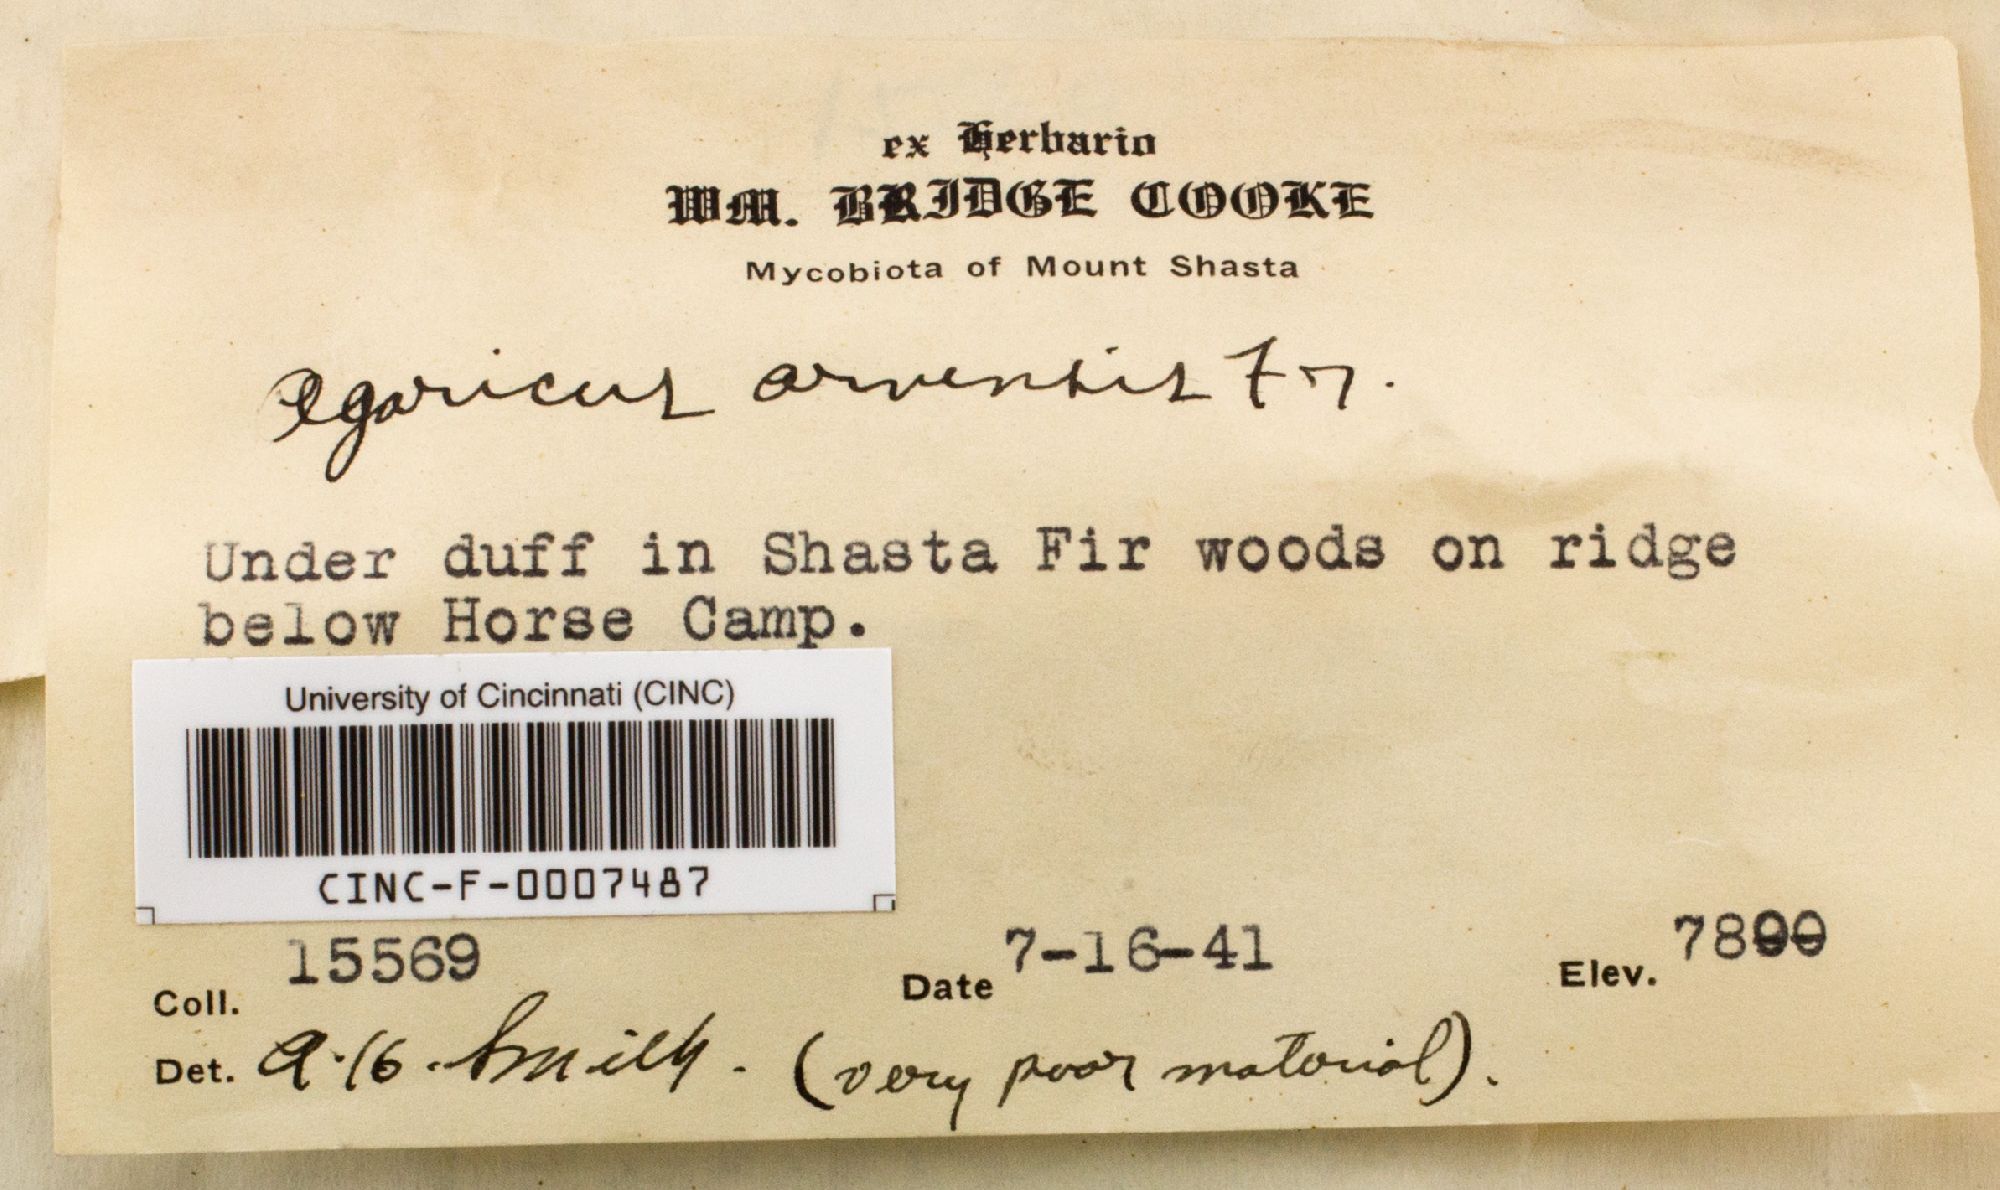 ex Herbario
WM. BRIDGE COOKE
Mycobiota of Mount Shasta
Agaricus arvensis Fr.
Under duff in Shasta Fir woods on ridge
below Horse Camp.
University of Cincinnati (CINC)
CINC-F-0007487
Coll. 15569 Date 7-16-41 Elev. 7800
Det. A. H. Smith. (very poor material).